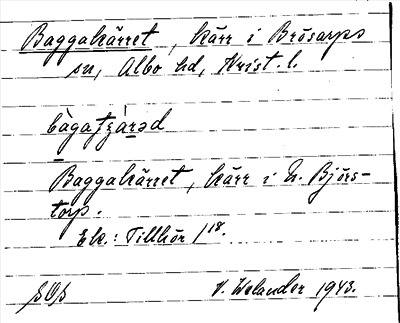 Baggakärret, kärr i Brösarps
sn, Albo hd, Krist. l.
Baggakärret, kärr i N. Björs-
torp.
Ek.: Tillhör 1/18.
SOS V. Welander 1943.